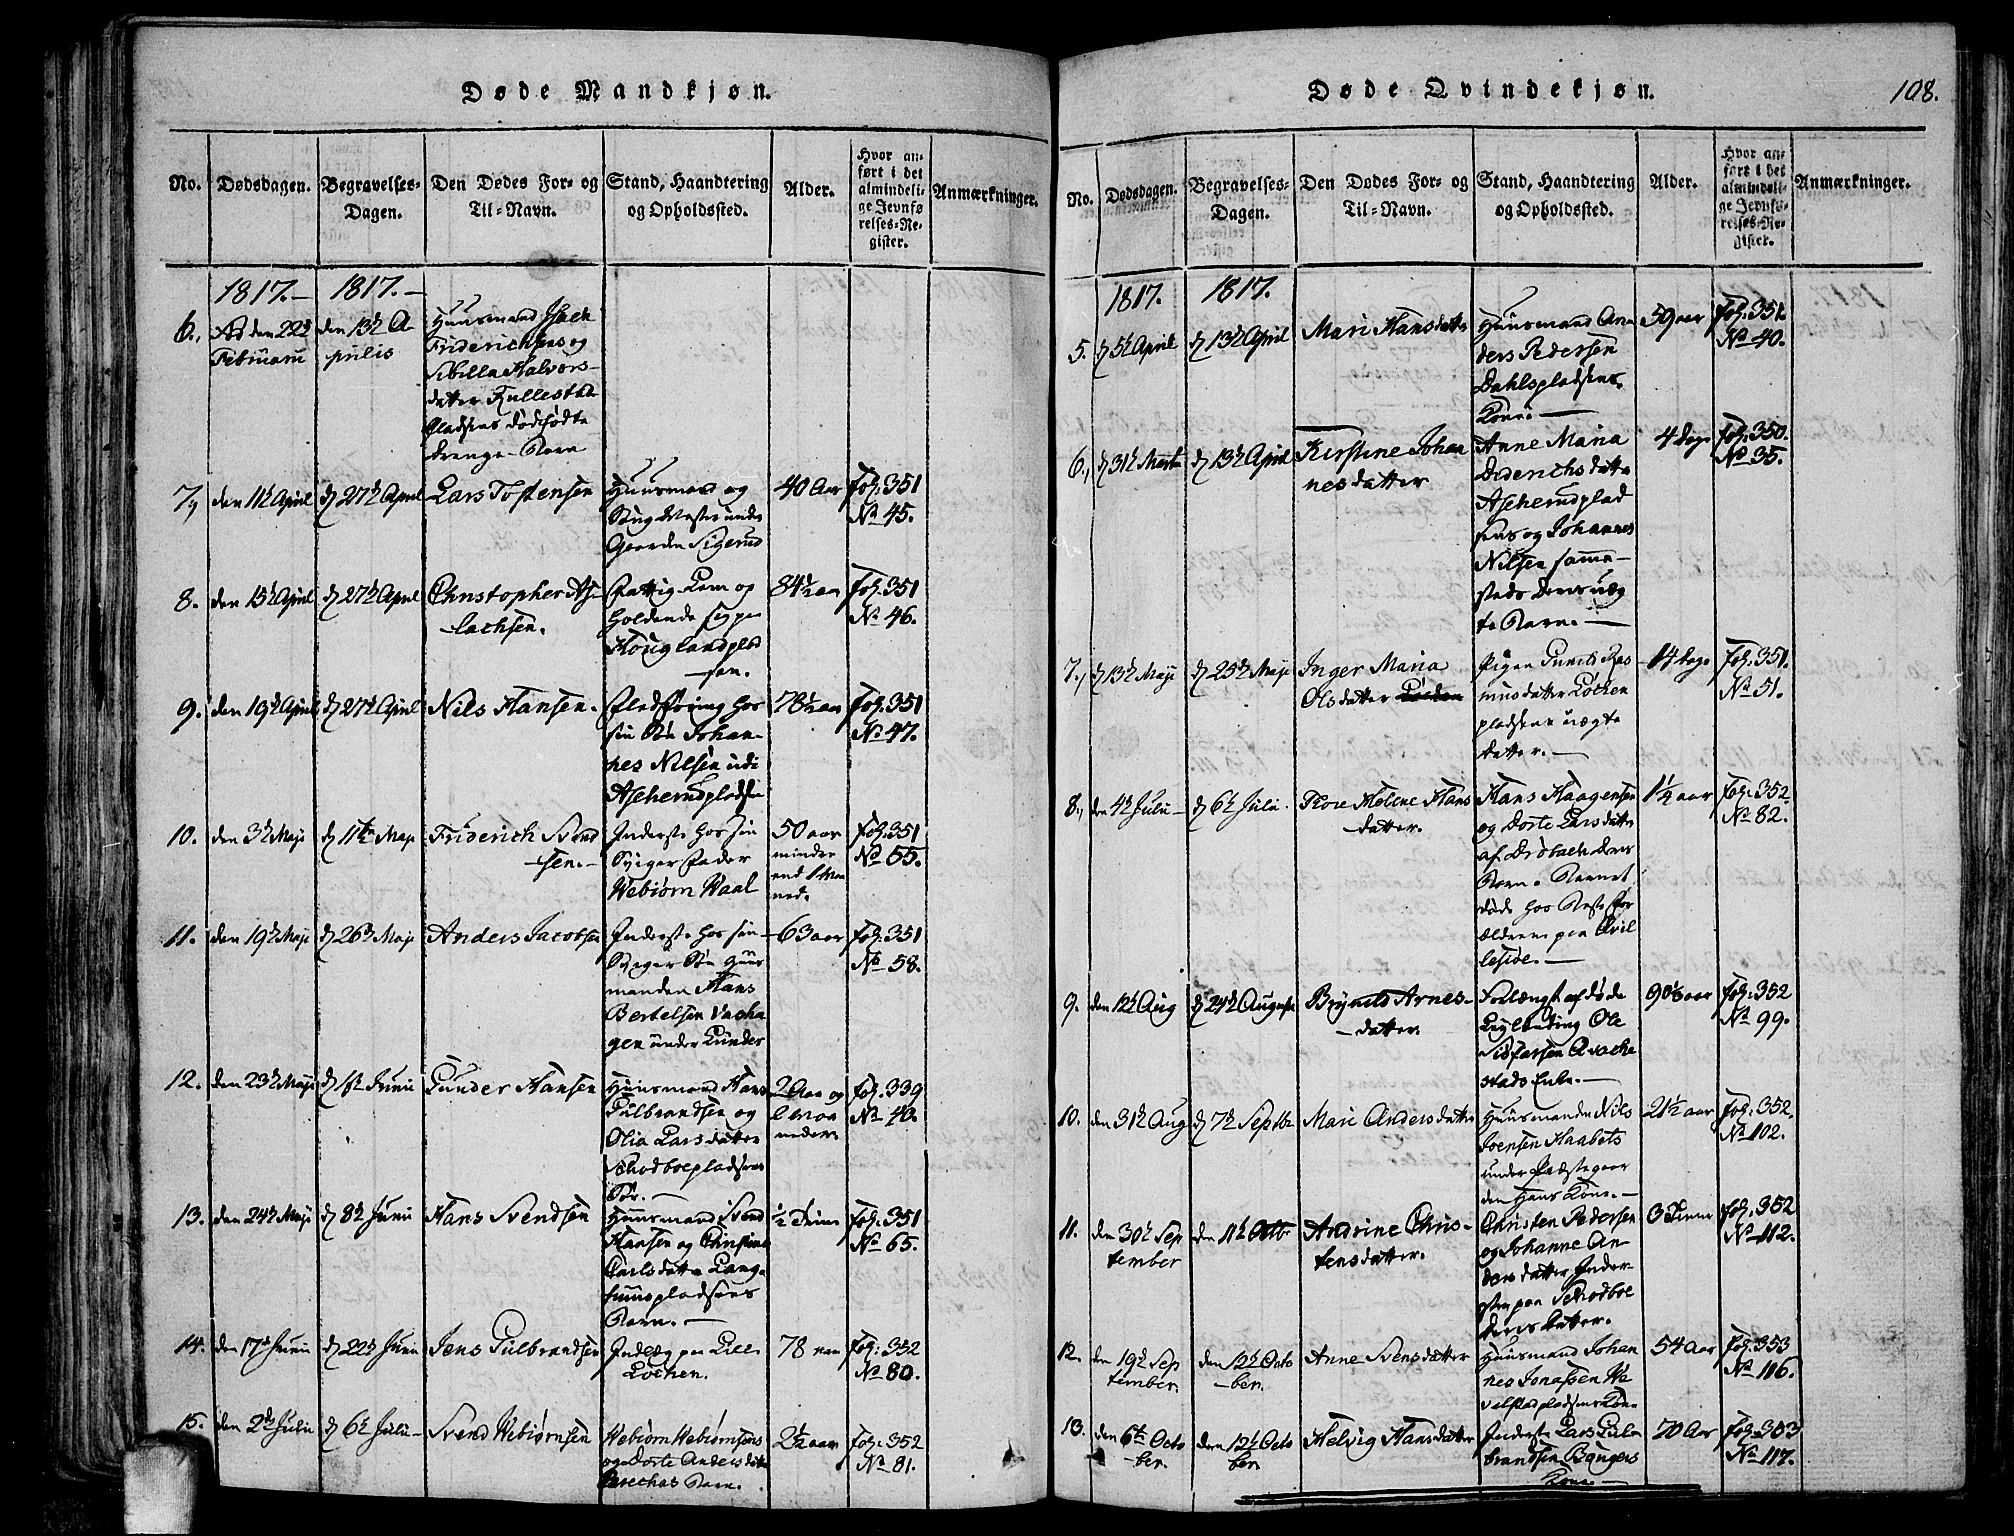 Døde Mandkjøn.
No.
Dødsdagen.
Begravelses-
Dagen.
Den Dødes For- og
Til-Navn.
Stand, Haandtering
og Opholdssted.
Alder.
Hvor an-
ført i det
almindeli-
ge Jevnfø
relses-Re-
gister.
Anmærkninger.
1817.-
1817.-
6.,
den 22d
Februarii
den 13h A
prilis
Huusmand
Friderichsens og
Sibilla Halvors-
datter
Pladsens dødfødte
Drenge-Barn
7,
den 11h April
d 27h April
Lars Tostensen
Huusmand og
under
Gaarden Sigerud
40 Aar
fol: 351
No 45.
8.
den 15h April
d 27h April
Christopher As-
lachsen.
Fattig-Lem og
Holdende sig paa
Houglandplad
sen.
84½ aar
fol: 351
No 46.
9.
den 19h April
d 27h April
Nils Hansen.
hos
sin Søn Johan-
nes Nilsen
78½ aar
fol: 351
No 47.
10.
den 3h Maji
d 11te Maji
Friderich Svend
sen.-
Inderste hos sin
Sviger Fader
Webiørn Waal
50 aar
mindre
end 1 Maa
ned.
fol: 351
No 55.
11.
den 19h Maji
d 26h Maji
Anders Jacobsen
Inderste hos sin
Sviger Søn Huus
manden Hans
Bertelsen Vacha
gen under Lunder
63 aar
fol: 351
No 58.
12.
den 23h Maji
d 1h Junii
Gunder Hansen
Huusmand Hans
Gulbrandsen og
Olia Lars datter
Schodboepladsens
Søn.-
2 Aar og
maa
neder.
fol: 339
No 40.
13.
den 24h Maji
d 8h Junii
Hans Svendsen
Huusmand Svend
Hansen og Christine
Carlsdatter Lang-
pladsens
Barn.-
½ Time
fol: 351
No 65.
14.
den 17h Junii
d 22h Junii
Jens Gulbrandsen
paa Lille
Løchen.
78 aar
fol: 352
No 80.
15.
den 2de Julii
d 6h Julii-
Svend Webiørnsen
Webiørn Webiørnsens
og Dorte Anders datter
Barn.
2½ aar
fol: 352
No 81.
Døde Qvindekjøn.
108.
No.
Dødsdagen.
Begravelses-
Dagen.
Den Dødes For- og
Til-Navn.
Stand, Haandtering
og Opholdssted.
Alder.
Hvor an-
ført i det
almindeli-
ge Jevnfø-
relses-Re-
gister.
Anmærkninger.
1817.
1817.
5.
d 5h April
d 13h April
Mari Hansdatter
Huusmand An
ders Pedersen
Dahlspladsens
Kone.-
59 aar
fol: 351.
No 40.
6.,
d 31h Marti
d 13h April
Kirstine Johan
nesdatter
Anne Maria
Diderichs datter
Ascherudplad
sens og Johannes
Nilsen samme-
steds deres uæg
te Barn.-
4 dage
fol: 350.
No 35.
7.,
d 13h Maji
d 25h Maji
Inger Maria
Olsdatter
Pigen Gunild Ras
musdatter Løchen
pladsens uægte
datter.-
14 dage
fol: 351.
No 51.
8.,
den 4h Julii-
d 6h Julii.
Helene Hans
datter.
Hans Haagensen
og Dorte Larsdatter
af Drøbach deres
Barn. Barnet
døde hos Beste for
ældrene paa Qvil
leside.-
1¼ aar
fol: 352.
No 82.
9.
den 12h Aug
d 24h August
Brynild Arnes-
datter.
Forlængst afdøde
Ole
Enke.-
90 aar
fol: 352
No 99.
10.
den 31h Aug
d 7h Septbr
Mari Anders datter
Huusmanden Nils
Joensen Haabets
under Præstegaar
den Hans Kone.-
21½ aar
fol: 352.
No 102.
11.
den 30h Sep
tember
den 11h Octbr
Andrine Chris-
tensdatter.
Christen Pedersen
og Johanne An-
dersdatter Inder-
ster paa Schodboe
deres datter.
3 Timer
fol: 352
No 112.
12.
den 19h Sep
tember.
den 12h Octo
-ber.
Anne Svensdatter
Huusmand Johan
nes Jonassen
54 Aar
fol: 353
No 116.
13.
den 6te Octo
ber.
den 12h Octo
ber.
Helvig Hansdatter
Inderste Lars Gul-
brandsen Baugers
Kone.-
70 Aar
fol: 303
No 117.